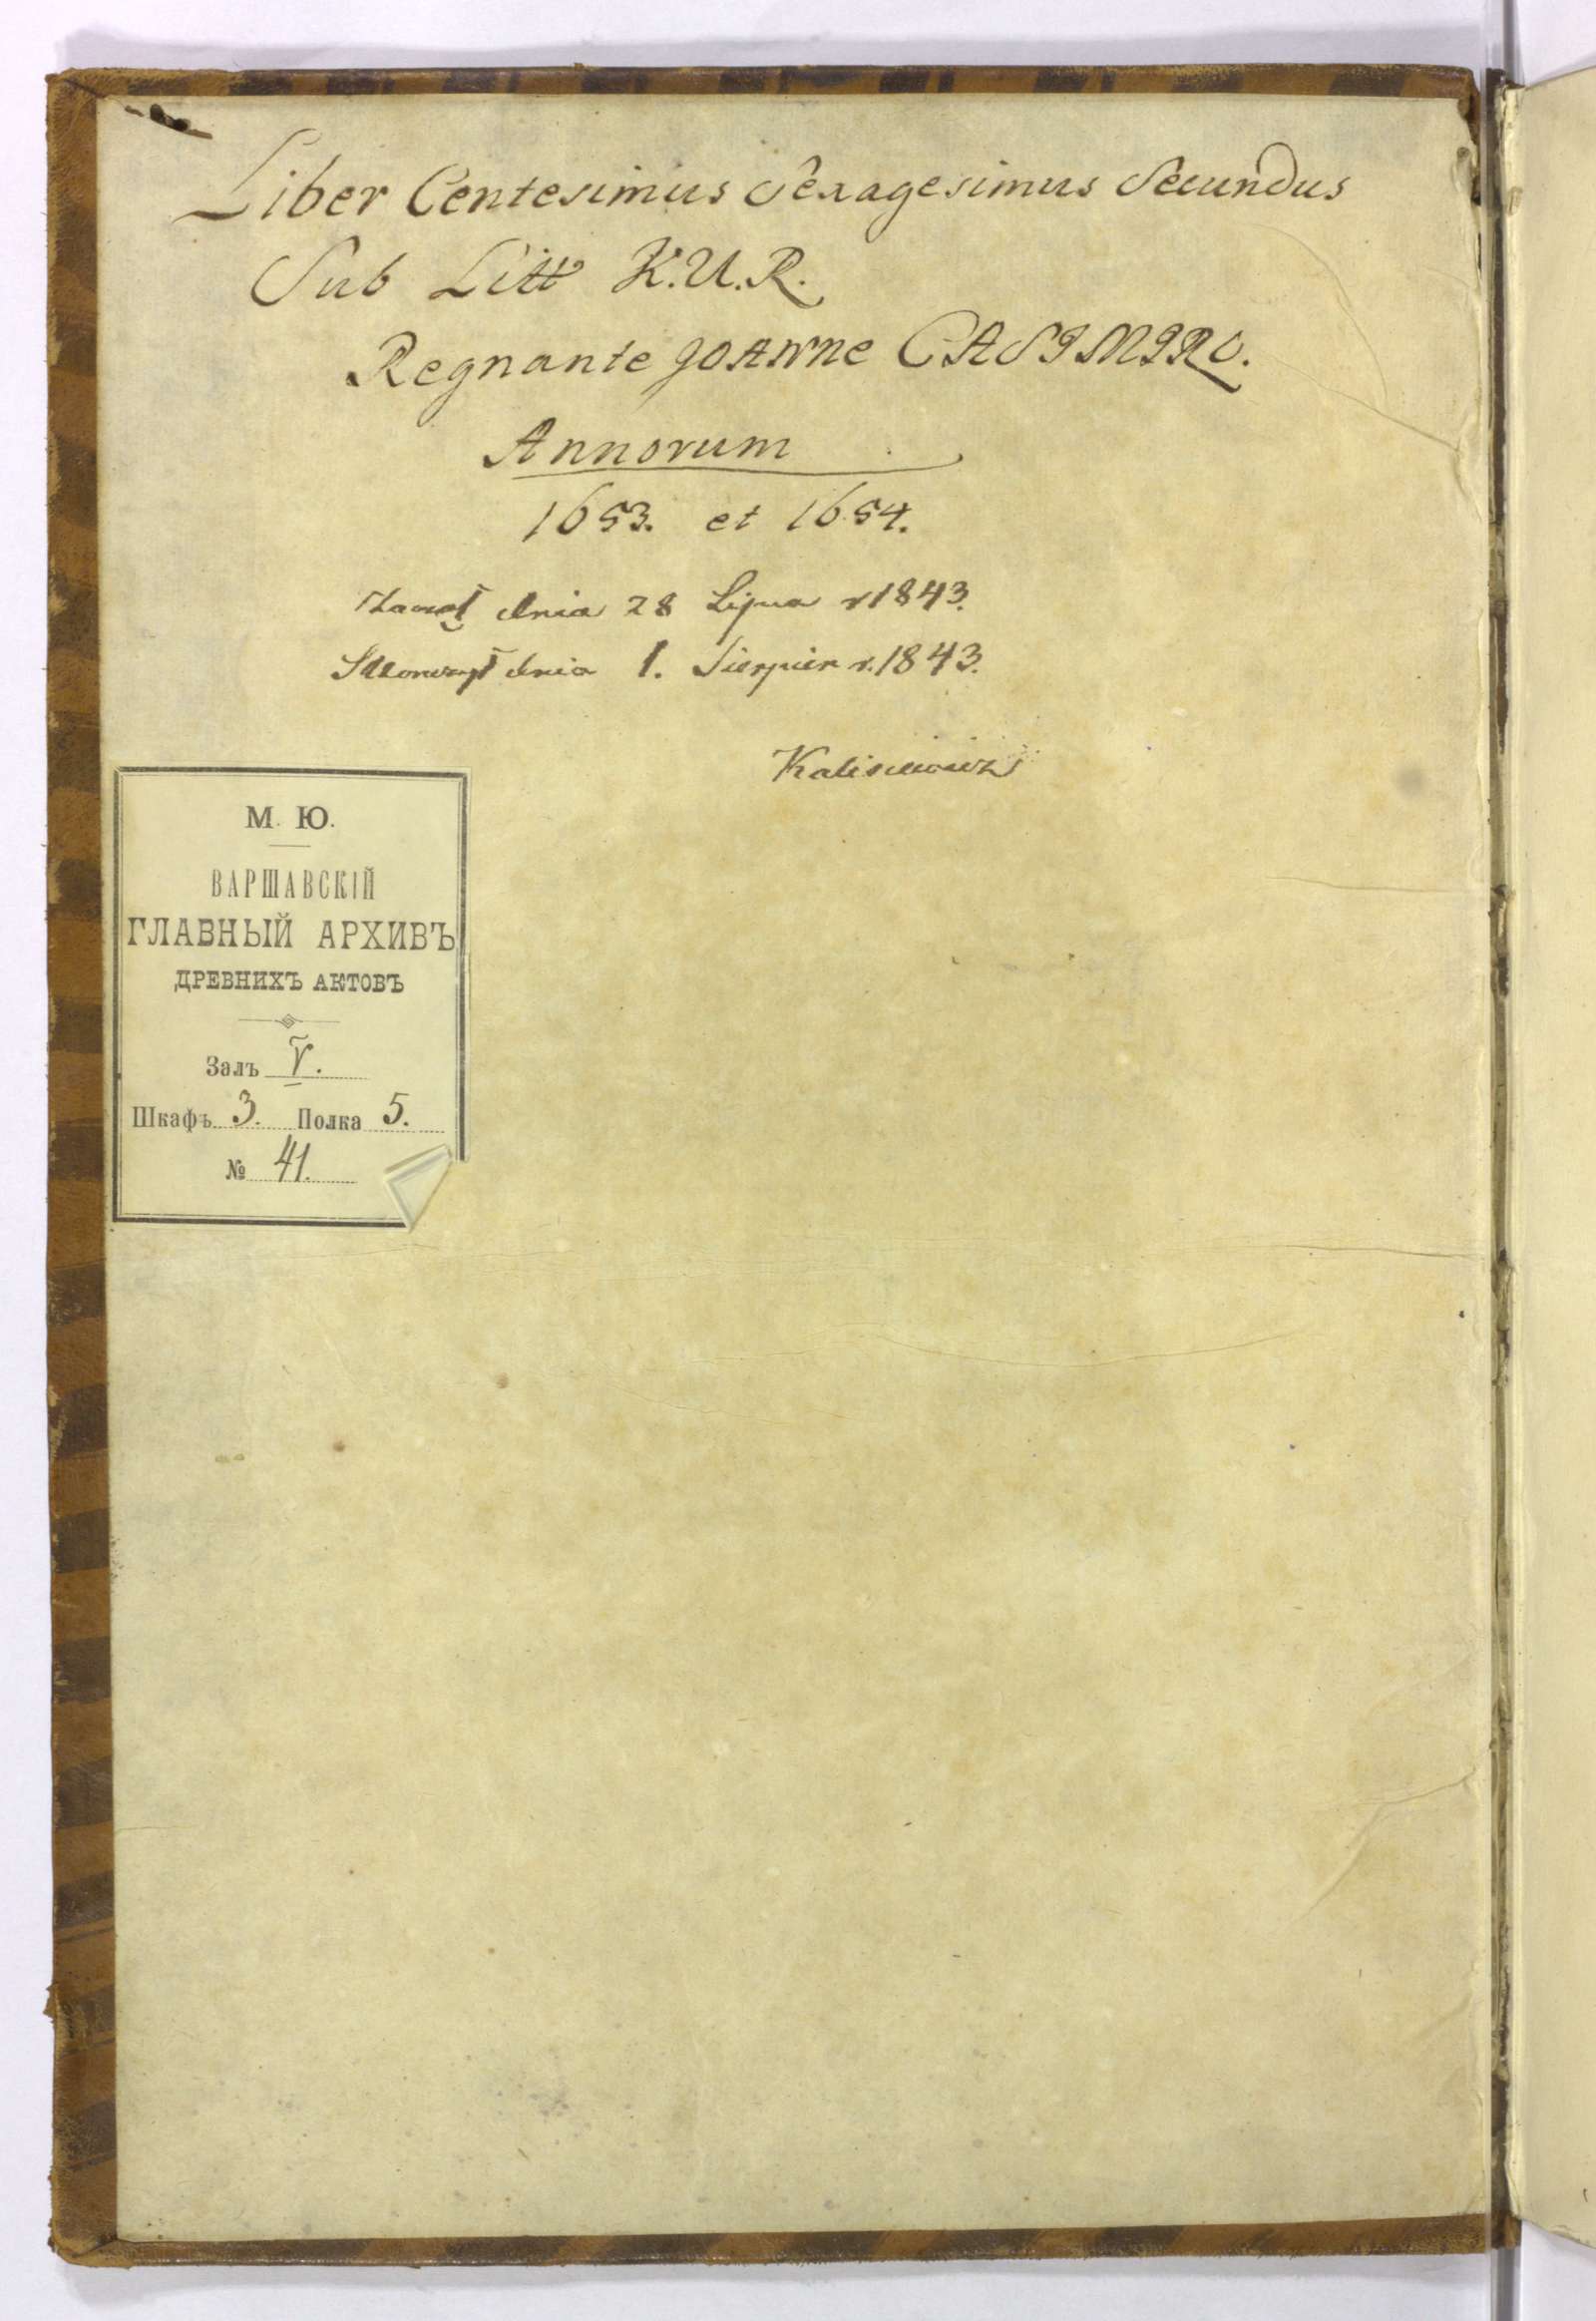 Liber Centesimus Sexagesimus Secundus
Sub Litt K.U.R.
Regnante JOANNe CASIMIRO.
Annorum
1653. et 1654.
Zaczął dnia 28 Lipca r 1843.
Skończył dnia 1. Sierpien r. 1843.
М. Ю.
ВАРШАВСКІЙ
ГЛАВНЫЙ АРХИВЪ
ДРЕВНИХЪ АКТОВЪ
Залъ V.
Шкафъ 3. Полка 5.
№ 41.